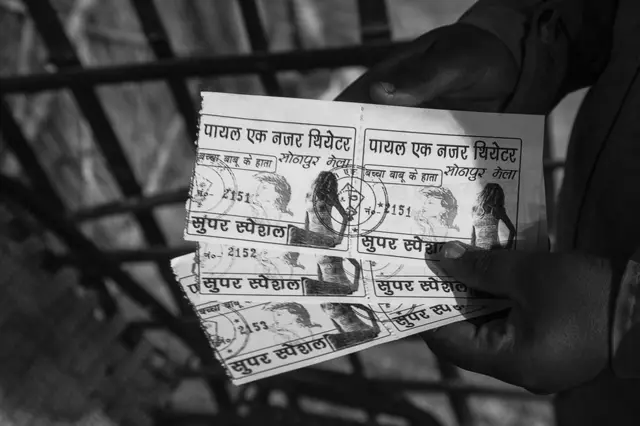 पायल एक नजर थियेटर
बच्चा बाबू के हाता सोनपुर मेला
2151
सुपर स्पेशल
पायल एक नजर थियेटर
बच्चा बाबू के हाता सोनपुर मेला
नं॰ 2151
सुपर
नं॰ 2152
सुपर स्पेशल
सुपर स्पेशल
2153
सुपर स्पेशल
सुपर स्पेशल